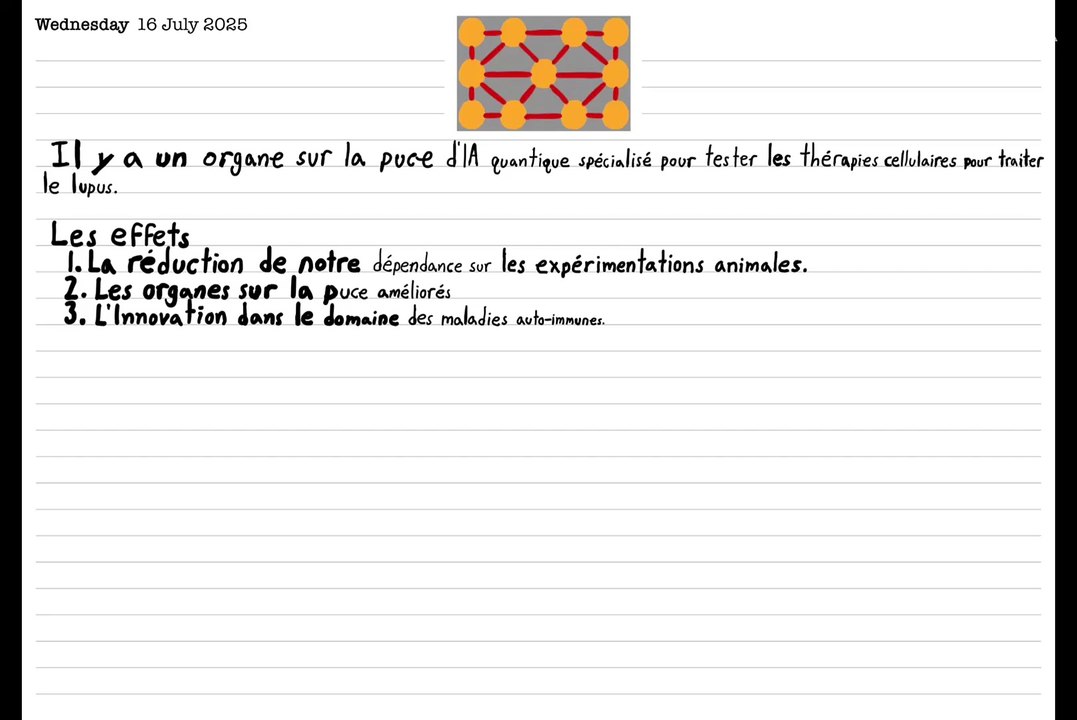 Wednesday 16 July 2025
Il y a un organe sur la puce d'IA quantique spécialisé pour tester les thérapies cellulaires pour traiter
le lupus.
Les effets
1. La réduction de notre dépendance sur les expérimentations animales.
2. Les organes sur la puce améliorés
3. L'Innovation dans le domaine des maladies auto-immunes.